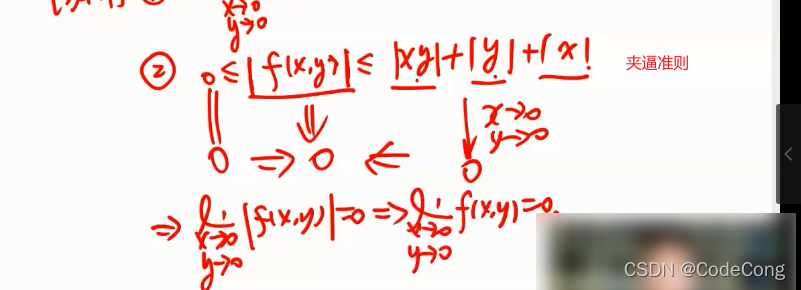 x→0
y→0
② 0 ≤ |f(x,y)| ≤ |xy|+|y|+|x| 夹逼准则
x→0
y→0
0 ⇒ 0 ← 0
⇒ lim |f(x,y)|=0 ⇒ lim f(x,y)=0.
x→0 x→0
y→0 y→0
CSDN @CodeCong